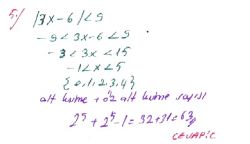 5-) |3x-6| < 9
-9 < 3x-6 < 9
-3 < 3x < 15
-1 < x < 5
{0,1,2,3,4}
alt küme + öz alt küme sayısı
2⁵ + 2⁵-1 = 32+31 = 63
CEVAP: C